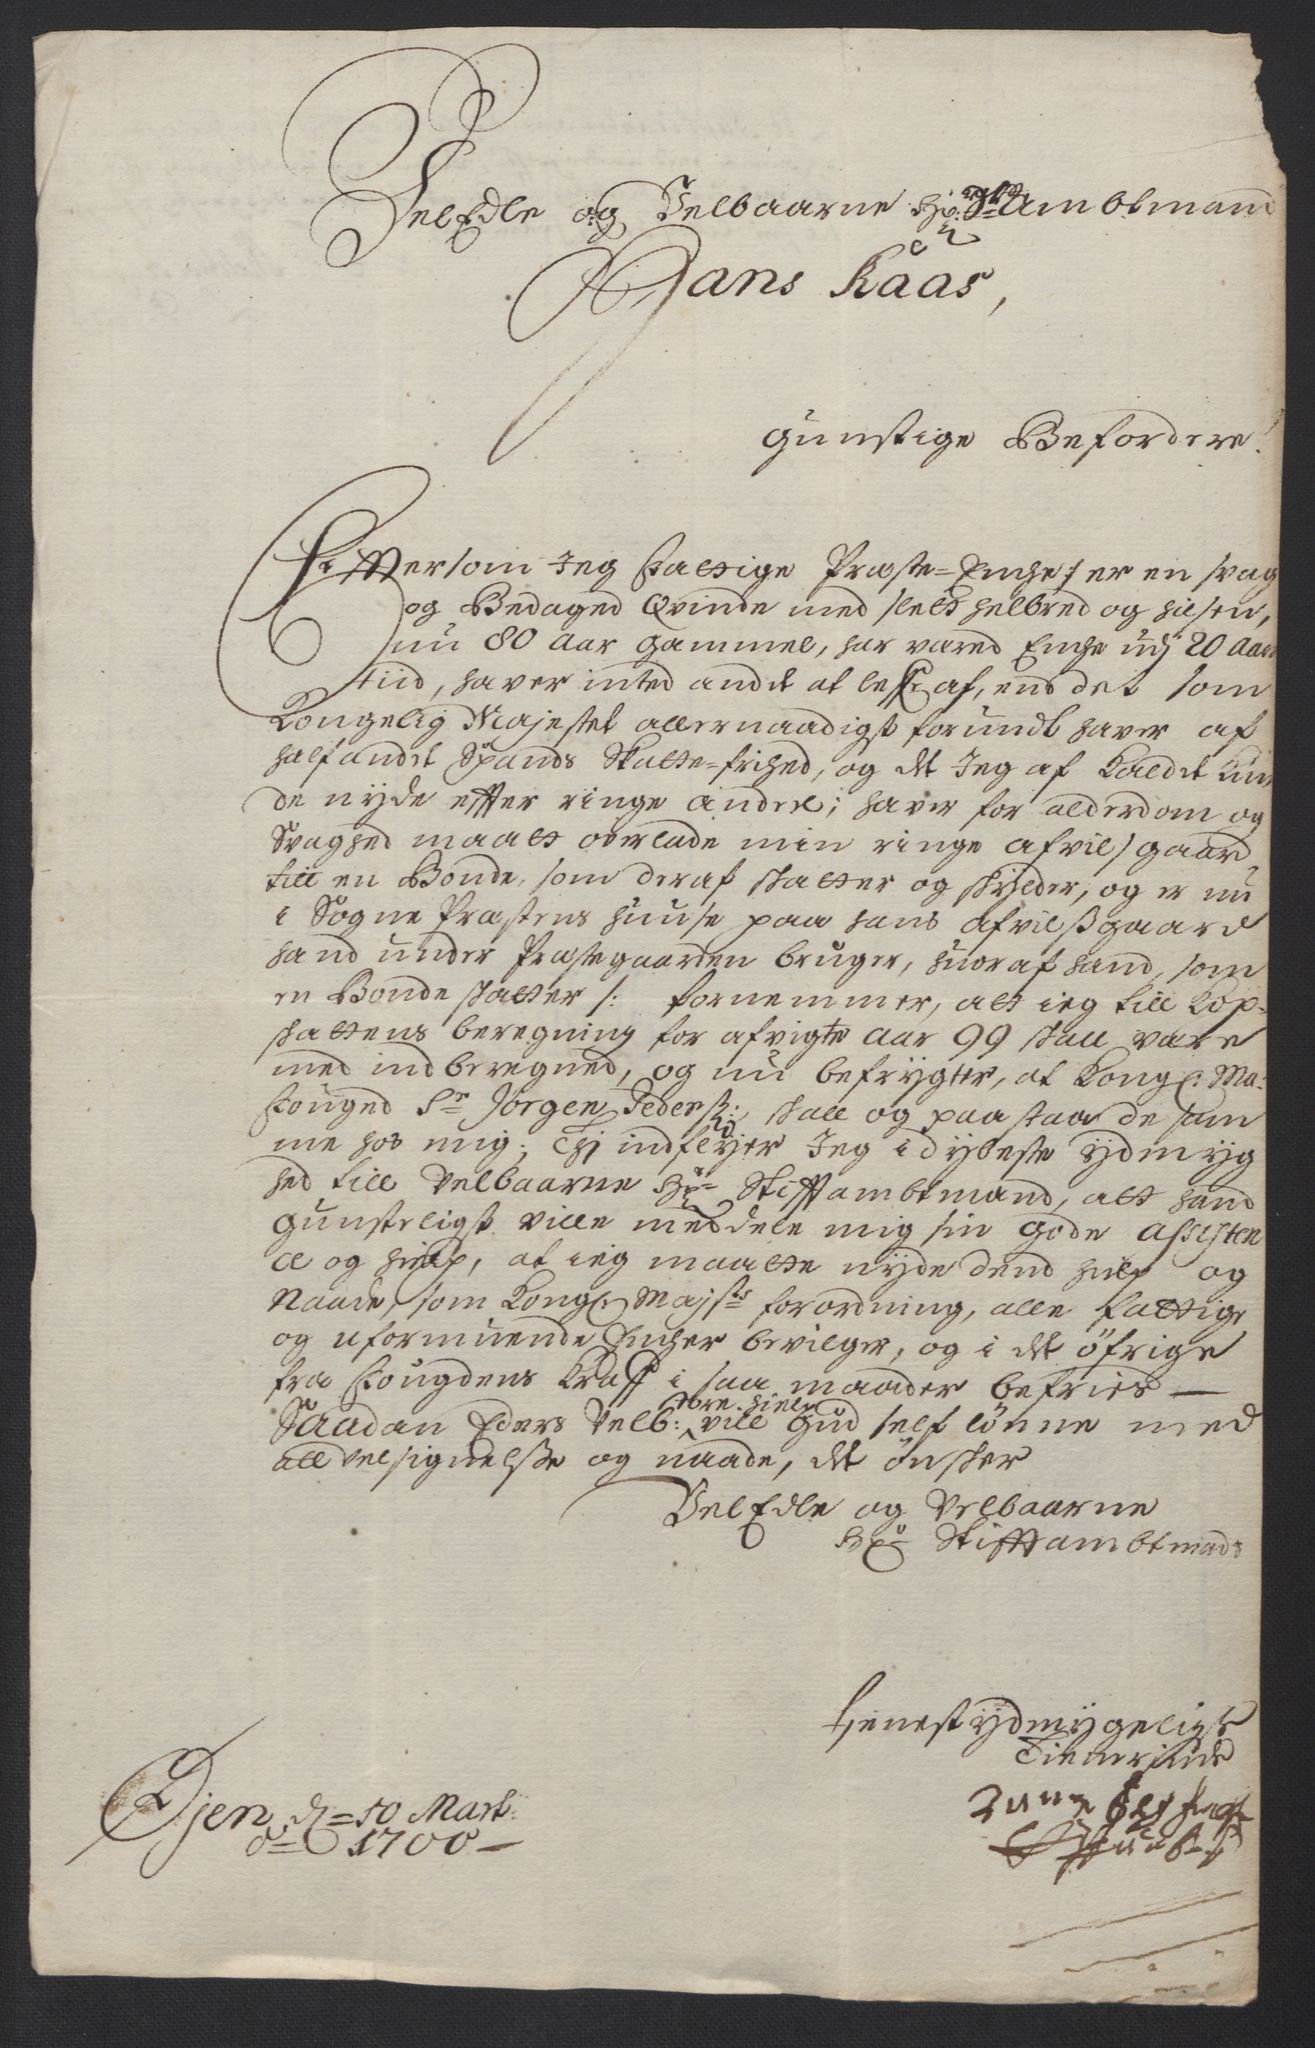 VelEdle og Velbaarne Hr: Stiftambtmand
Hans Kaas,
gunstige Befordere!
Effversom Jeg Fattige Præste=Enche, er en svag
og Bedaged Qvinde med slett helbred og hilsen,
nu 80 Aar gammel, har væred Enche udj 20 Aars
tiid, haver inted andet at lefve af, end det som
Kongelig Majestet allernaadigst forundt haver af
halfandet Spands Skatte=frihed, og dt Jeg af Kaldet kun
de nyde effter ringe andeel; haver for alderdom og
Svaghed maatt overlade min ringe afvils gaard
till en Bonde, som deraf skatter og skylder, og er nu
i Sogne Præstens huuse paa hans afvilssgaard
hand under Præstegaarden bruger, huoraf hand, som
en Bonde skatter /: fornemmer, att ieg till Kop-
skattens beregning for afvigte Aar 99 skall være
med indberegned, og nu befrygter, at Kongl: Ma:
Fouged Sr Jørgen Pederss: skall og paastaa de sam
me hos mig; Thj indflyer Jeg i dybeste ydmyg
hed till Velbaarne Hr: Stifftambtmand, att hand
gunsteligst ville meddele mig sin gode Assisten
ce og hielp, at ieg maatte nyde dend hielp og
Naade, som Kongl: Majsts forordning, alle fattige
og uformuende Encher bevilger, og i dt öfrige
fra Fougdens Kraff i saa maader befries —
Saadan Eders Velb: store hielp vill Gud self lönne med
all velsignelsse og naade, dt önsker
VelEdle og Velbaarne
Hr: Stifftambtmads
tienestydmygeligste
Tienerinde
Anne
Öjen d= 10 Mart:
Ao= 1700 —